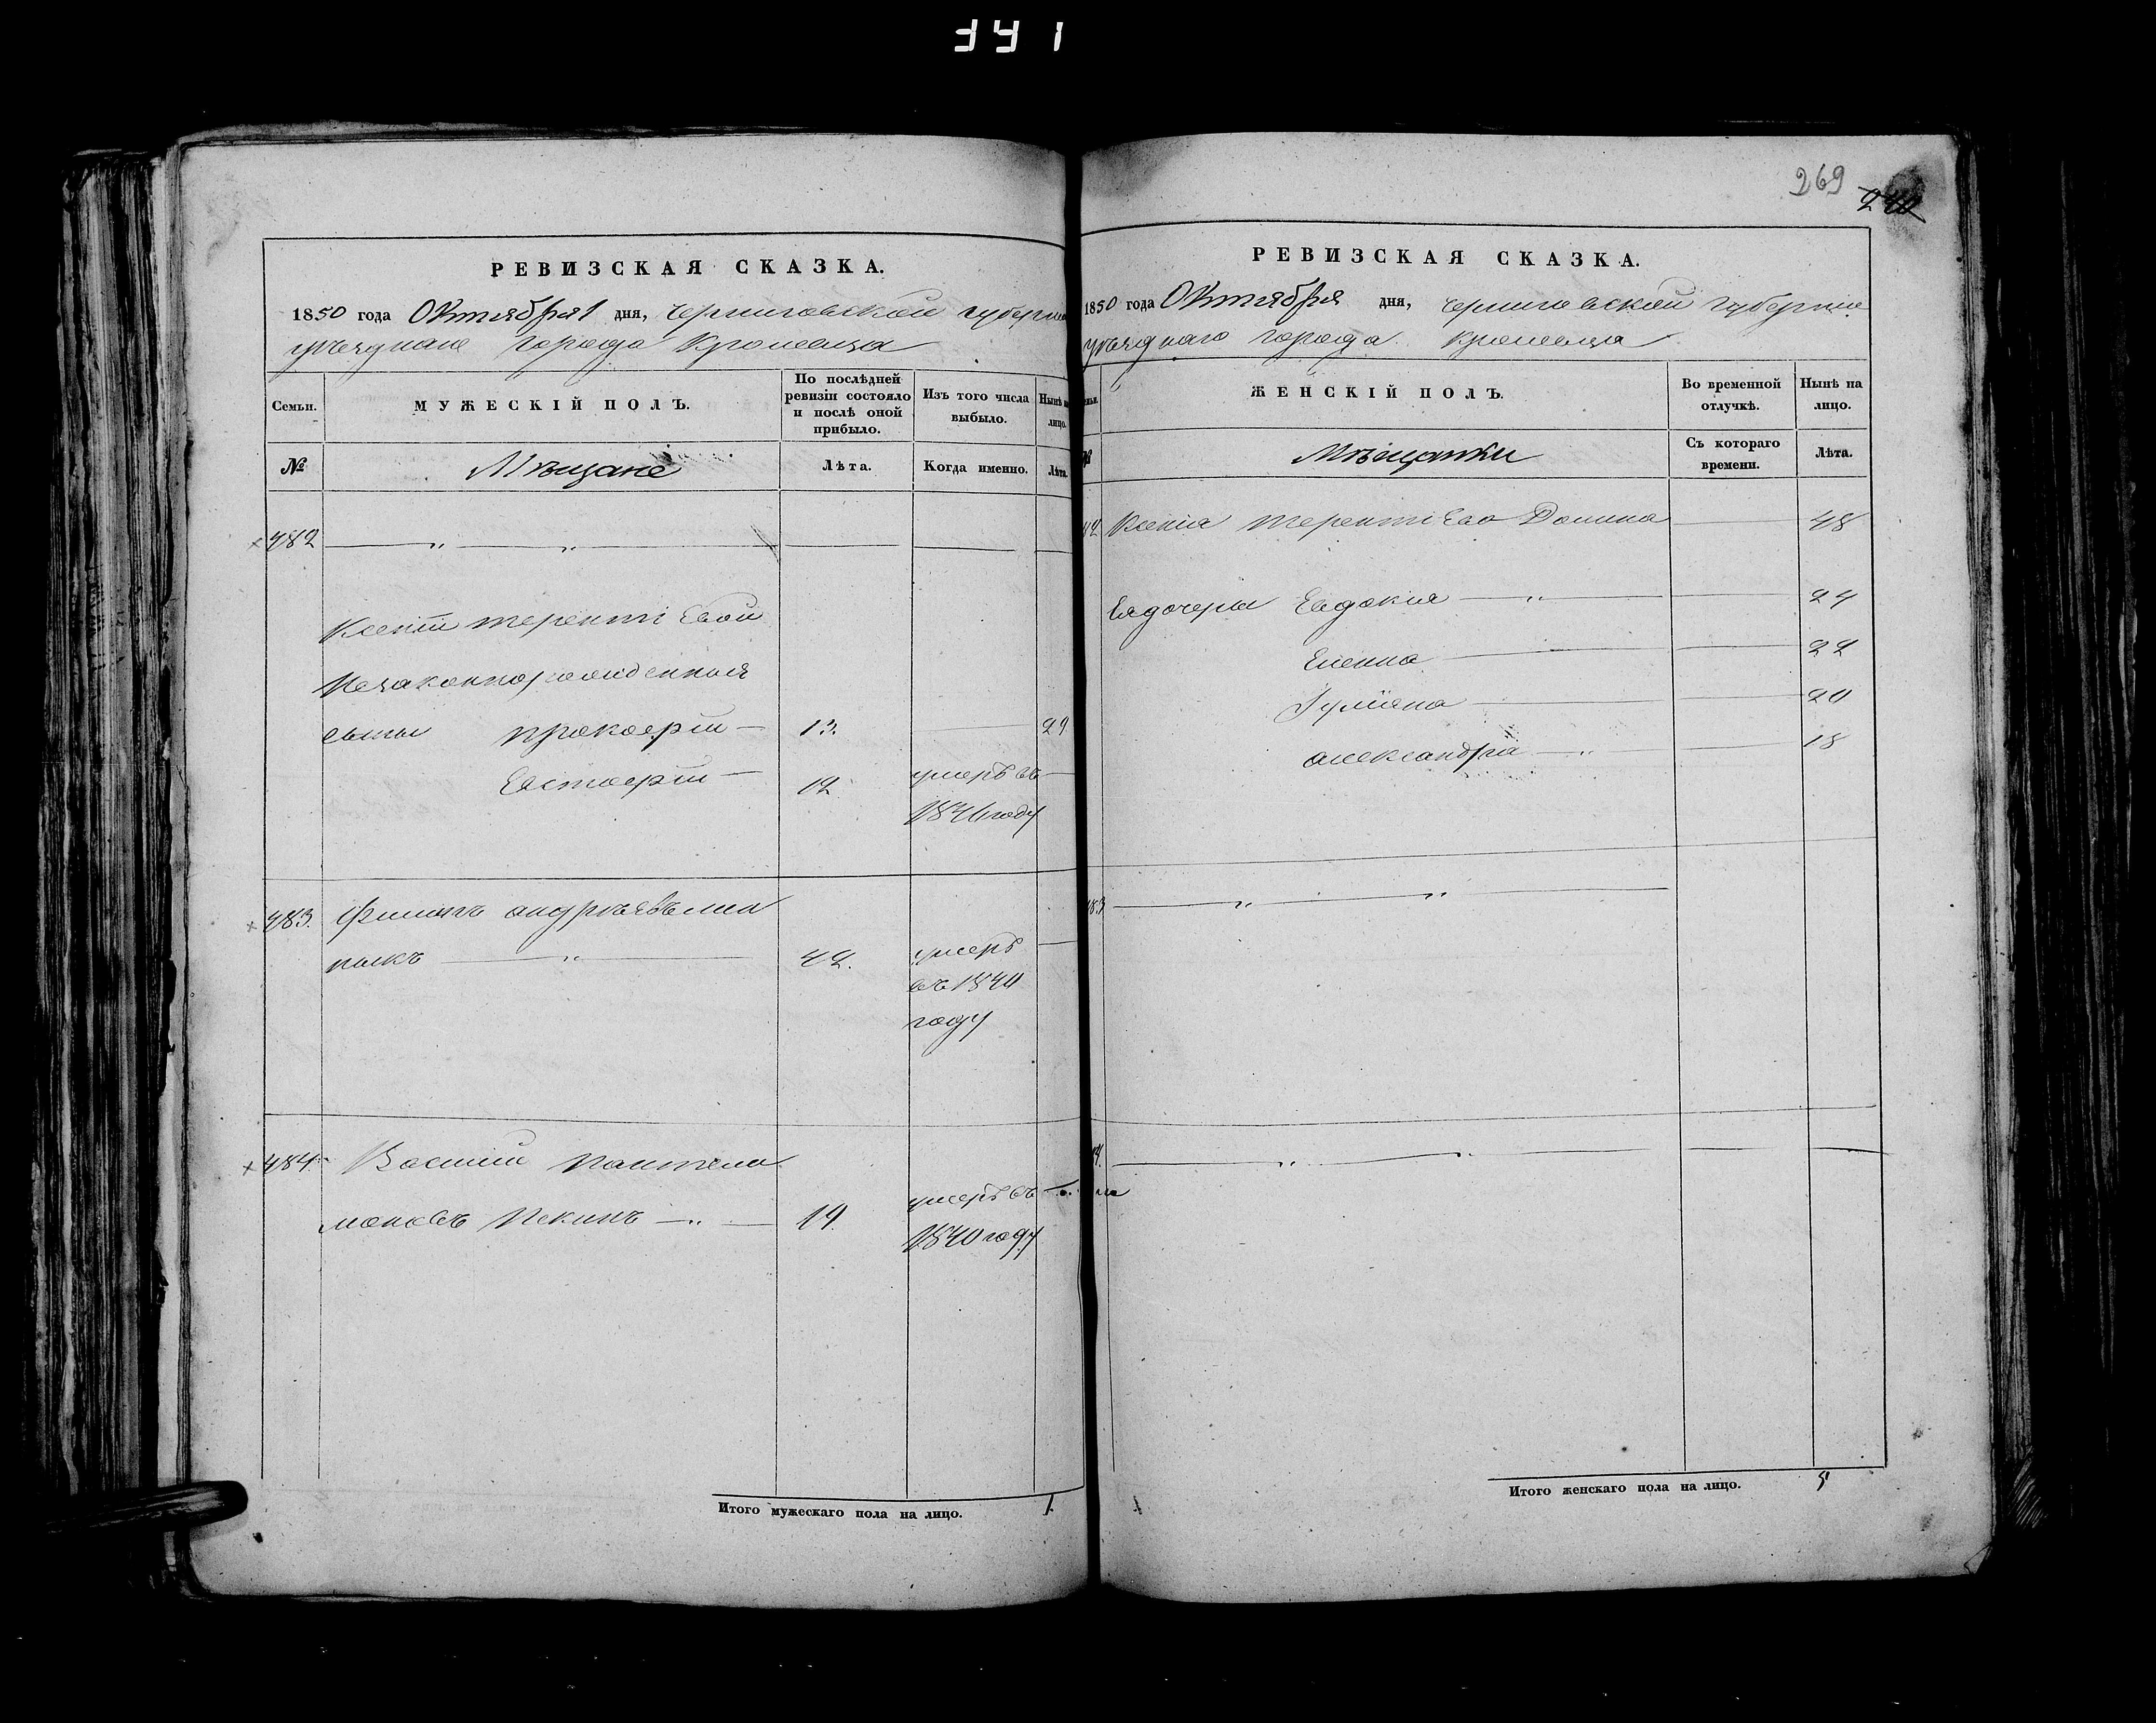 341
РЕВИЗСКАЯ СКАЗКА.
1850 года Октября 1 дня, Черниговской губерніи
уѣзднаго города Кролевца
Семьи.
МУЖЕСКІЙ ПОЛЪ.
По послѣдней ревизіи состояло и послѣ оной прибыло.
Изъ того числа выбыло.
Нынѣ на лицо.
№
Мѣщане
Лѣта.
Когда именно.
Лѣта.
482
Ксеніи терентіевой
Незаконнорожденныя
сыны Прокофій — 13. 29
Евстафій — 12 умеръ въ
1846 году
483. Филипъ андреѣвъ
42. умеръ
въ 1840
году
484. Василій Пантели
моновъ 19. умеръ въ
1840 году
Итого мужескаго пола на лицо. 1.
269
240
РЕВИЗСКАЯ СКАЗКА.
1850 года Октября дня, Черниговской губерніи
уѣзднаго города Кролевца
ЖЕНСКІЙ ПОЛЪ.
Во временной отлучкѣ.
Нынѣ на лицо.
Мѣщанки
Съ котораго времени.
Лѣта.
Ксенія терентіева 48
Ея дочери Евдокія 24
Елена 22
Іуліана 20
александра 18
483
Итого женскаго пола на лицо. 5